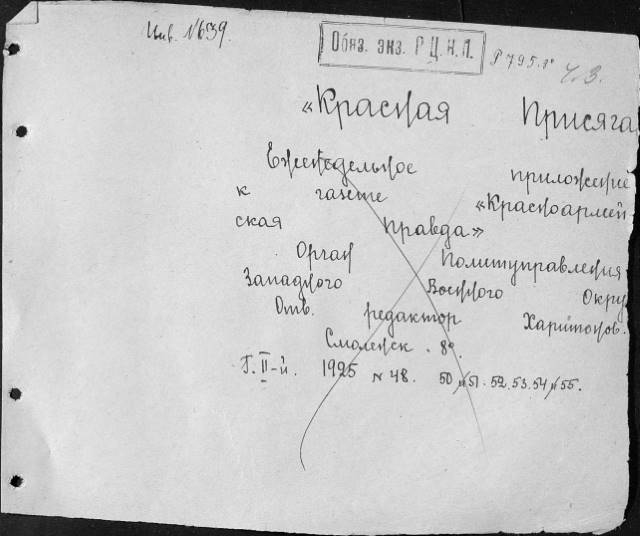 Инв. №639.
Обяз. экз. Р.Ц.К.П.
Р 795.
«Красная Присяга
Еженедельное приложение
к газете «Красноармей-
ская правда»
Орган Политуправления
Западного Военного Окру
Отв. редактор Харитонов.
Смоленск. 8°.
Г. II-й. 1925 № 48. 50 51. 52. 53. 54 55.